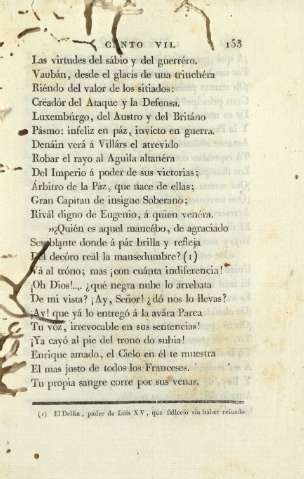 CANTO VII. 153
Las virtudes del sábio y del guerréro.
Vaubán, desde el glacis de una trinchéra
Riéndo del valor de los sitiados:
Creádór del Ataque y la Defensa.
Luxembúrgo, del Austro y del Británo
Pásmo: infeliz en páz, invicto en guerra.
Denáin verá á Villárs el atrevido
Robar el rayo al Aguila altanéra
Del Imperio á poder de sus victorias;
Árbitro de la Paz, que nace de ellas;
Gran Capitan de insigne Soberano;
Rivál digno de Eugenio, á quien venéra.
»¿Quién es aquel mancébo, de agraciado
Semblante donde á pár brilla y refleja
Del decóro reál la mansedumbre? (1)
Vá al tróno; mas ¡con cuánta indiferencia!
¡Oh Dios!... ¿qué negra nube lo arrebata
De mi vista? ¡Ay, Señor! ¿dó nos lo llevas?
¡Ay! que yá lo entregó á la avára Parca
Tu voz, irrevocable en sus sentencias!
¡Ya cayó al pie del trono do subia!
Enrique amado, el Cielo en él te muestra
El mas justo de todos los Franceses.
Tu propia sangre corre por sus venas.
(1) El Delfin, padre de Luis XV, que falleció sin haber reinado.